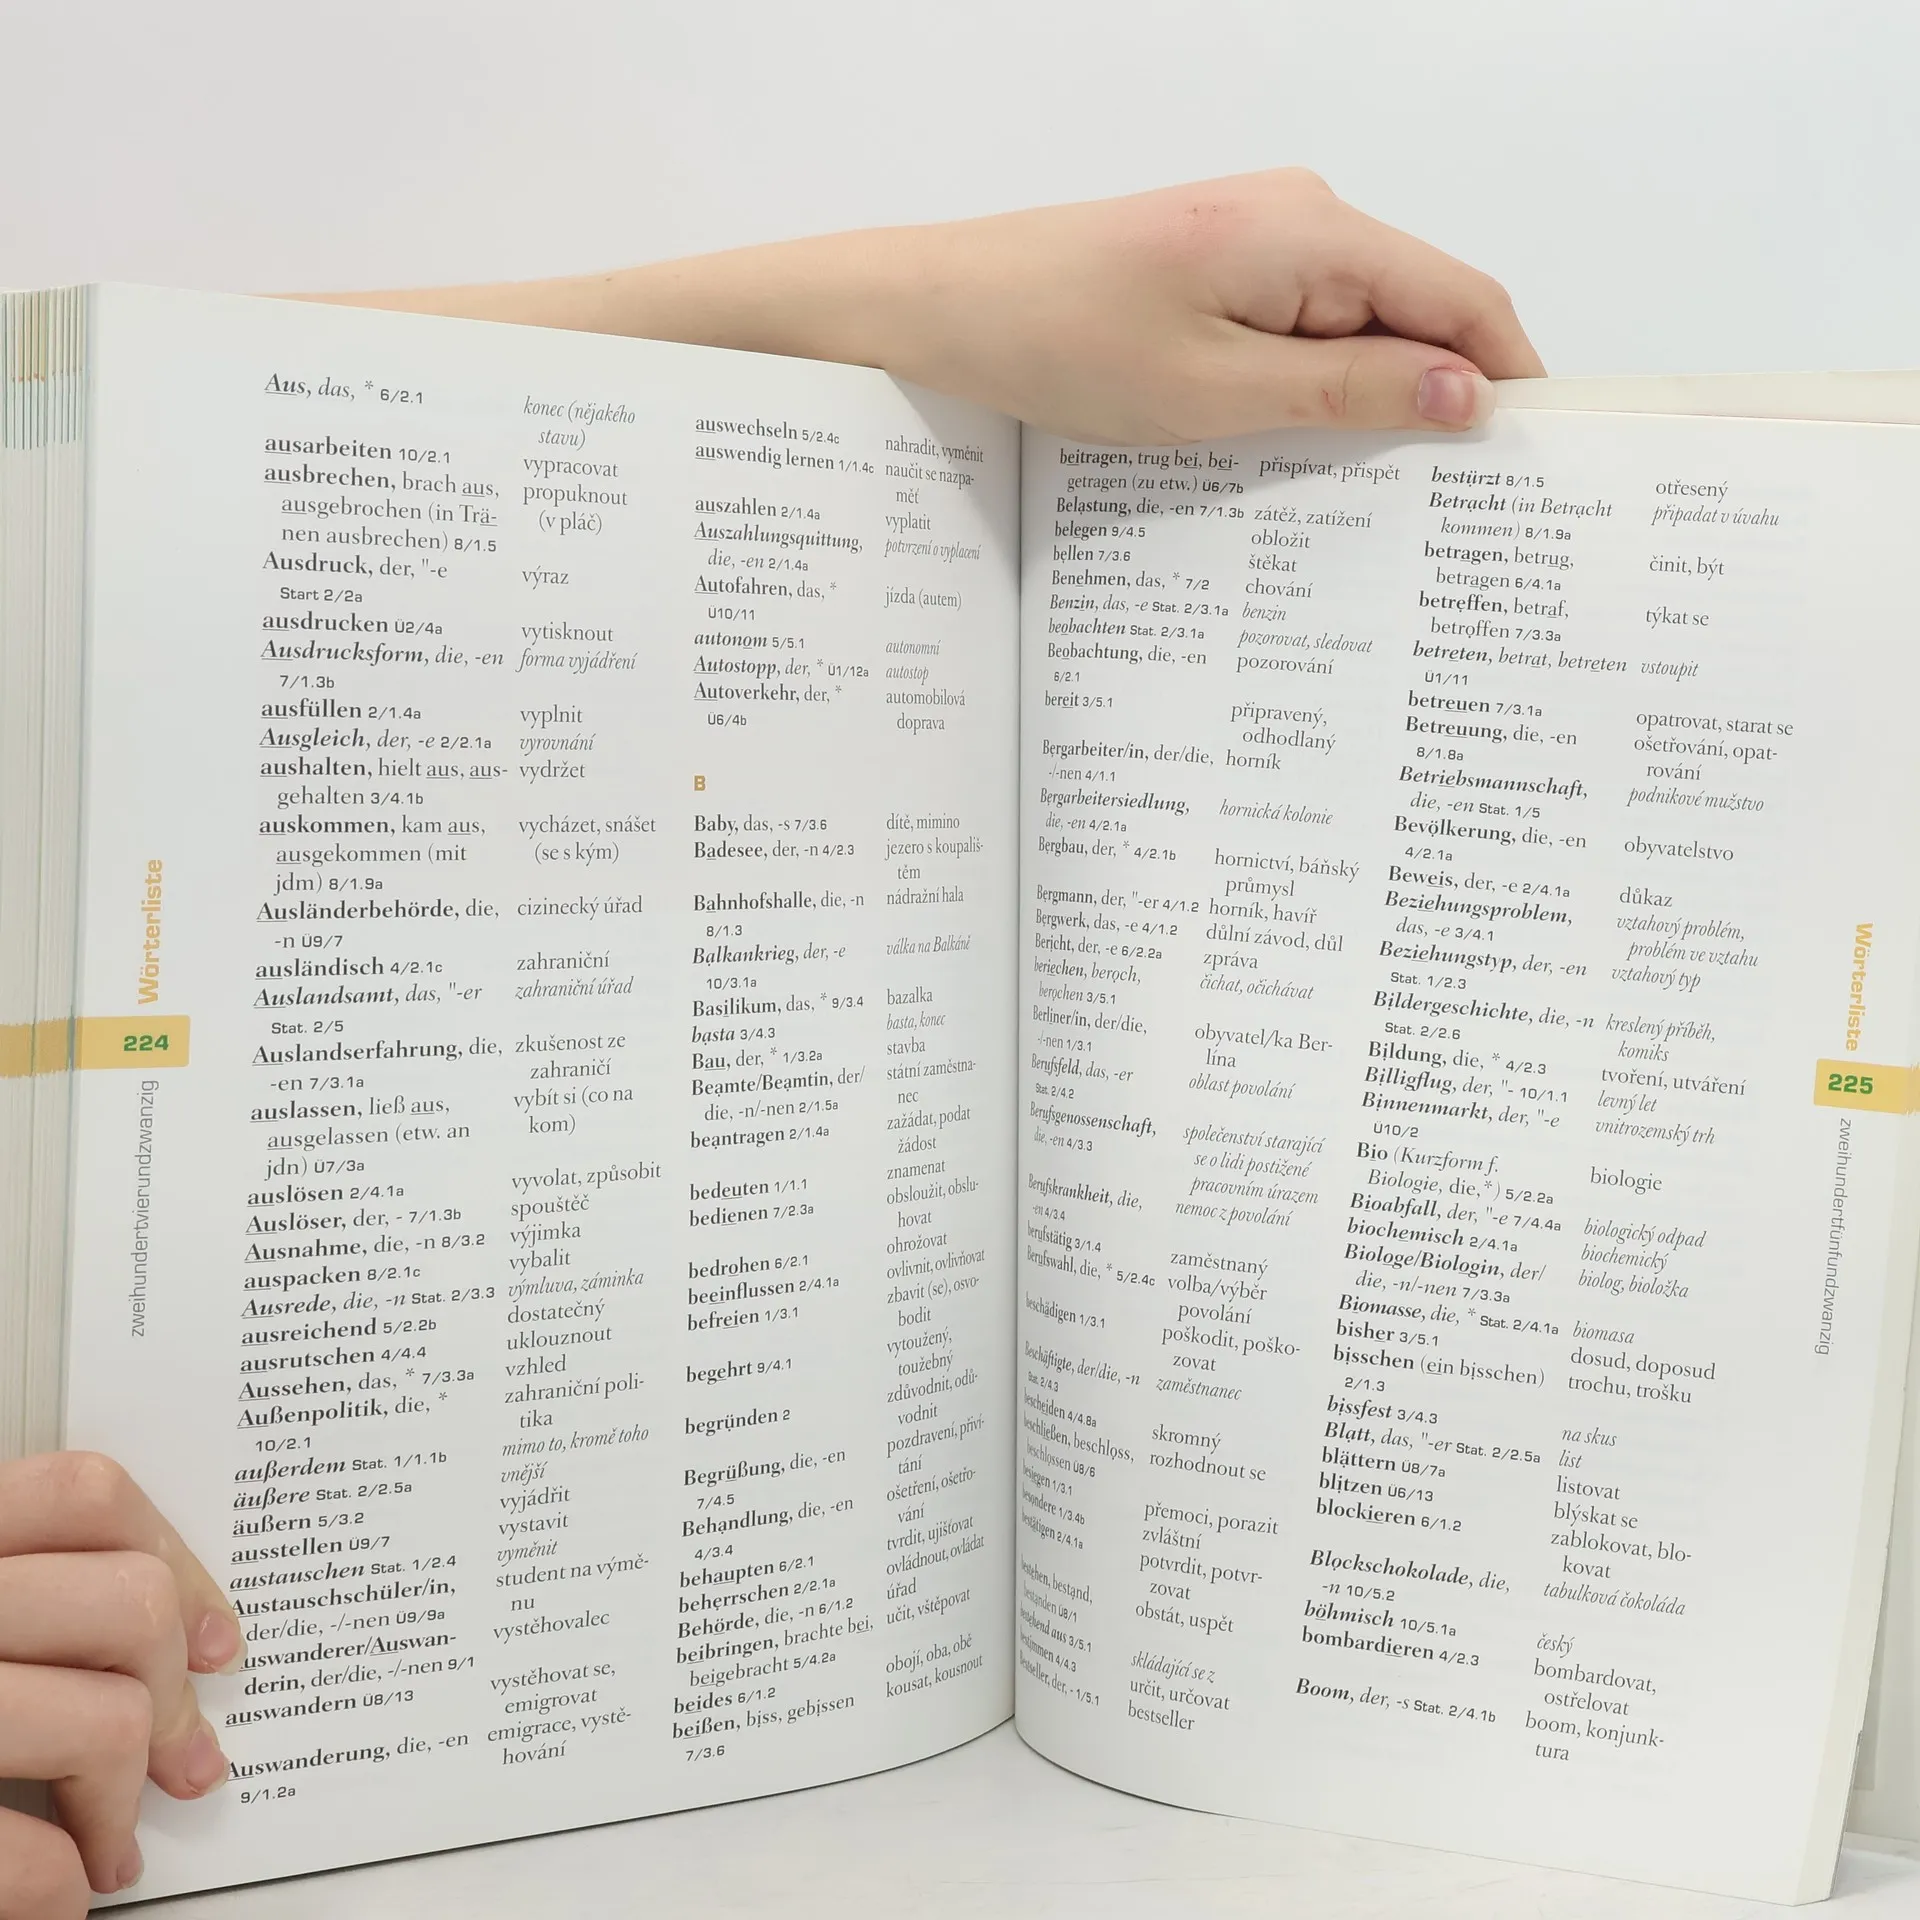 Aus, das, * 6/2.1
konec (nějakého
stavu)
ausarbeiten 10/2.1
vypracovat
ausbrechen, brach aus,
propuknout
ausgebrochen (in Trä-
(v pláč)
nen ausbrechen) 8/1.5
Ausdruck, der, "-e
výraz
Start 2/2a
ausdrucken Ü2/4a
vytisknout
Ausdrucksform, die, -en
forma vyjádření
7/1.3b
ausfüllen 2/1.4a
vyplnit
Ausgleich, der, -e 2/2.1a
vyrovnání
aushalten, hielt aus, aus-
vydržet
gehalten 3/4.1b
auskommen, kam aus,
vycházet, snášet
ausgekommen (mit
(se s kým)
jdm) 8/1.9a
Ausländerbehörde, die,
cizinecký úřad
-n Ü9/7
ausländisch 4/2.1c
zahraniční
Auslandsamt, das, "-er
zahraniční úřad
Stat. 2/5
Auslandserfahrung, die,
zkušenost ze
-en 7/3.1a
zahraničí
auslassen, ließ aus,
vybít si (co na
ausgelassen (etw. an
kom)
jdn) Ü7/3a
auslösen 2/4.1a
vyvolat, způsobit
Auslöser, der, - 7/1.3b
spouštěč
Ausnahme, die, -n 8/3.2
výjimka
auspacken 8/2.1c
vybalit
Ausrede, die, -n Stat. 2/3.3
výmluva, záminka
ausreichend 5/2.2b
dostatečný
ausrutschen 4/4.4
uklouznout
Aussehen, das, * 7/3.3a
vzhled
Außenpolitik, die, *
zahraniční poli-
10/2.1
tika
außerdem Stat. 1/1.1b
mimo to, kromě toho
äußere Stat. 2/2.5a
vnější
äußern 5/3.2
vyjádřit
ausstellen Ü9/7
vystavit
austauschen Stat. 1/2.4
vyměnit
Austauschschüler/in,
student na výmě-
der/die, -/-nen Ü9/9a
nu
uswanderer/Auswan-
vystěhovalec
derin, der/die, -/-nen 9/1
auswandern Ü8/13
vystěhovat se,
emigrovat
Auswanderung, die, -en
emigrace, vystě-
9/1.2a
hování
auswechseln 5/2.4c
nahradit, vyměnit
auswendig lernen 1/1.4c
naučit se nazpa-
měť
auszahlen 2/1.4a
vyplatit
Auszahlungsquittung,
potvrzení o vyplacení
die, -en 2/1.4a
Autofahren, das, *
jízda (autem)
Ü10/11
autonom 5/5.1
autonomní
Autostopp, der, * Ü1/12a
autostop
Autoverkehr, der, *
automobilová
Ü6/4b
doprava
B
Baby, das, -s 7/3.6
dítě, mimino
Badesee, der, -n 4/2.3
jezero s koupališ-
těm
Bahnhofshalle, die, -n
nádražní hala
8/1.3
Balkankrieg, der, -e
válka na Balkáně
10/3.1a
Basilikum, das, * 9/3.4
bazalka
basta 3/4.3
basta, konec
Bau, der, * 1/3.2a
stavba
Beamte/Beamtin, der/
státní zaměstna-
die, -n/-nen 2/1.5a
nec
beantragen 2/1.4a
zažádat, podat
žádost
bedeuten 1/1.1
znamenat
bedienen 7/2.3a
obsloužit, obslu-
hovat
bedrohen 6/2.1
ohrožovat
beeinflussen 2/4.1a
ovlivnit, ovlivňovat
befreien 1/3.1
zbavit (se), osvo-
bodit
begehrt 9/4.1
vytoužený,
toužebný
begründen 2
zdůvodnit, odů-
vodnit
Begrüßung, die, -en
pozdravení, přiví-
7/4.5
tání
Behandlung, die, -en
ošetření, ošetřo-
4/3.4
vání
behaupten 6/2.1
tvrdit, ujišťovat
beherrschen 2/2.1a
ovládnout, ovládat
Behörde, die, -n 6/1.2
úřad
beibringen, brachte bei,
učit, vštěpovat
beigebracht 5/4.2a
beides 6/1.2
obojí, oba, obě
beißen, biss, gebissen
kousat, kousnout
7/3.6
Wörterliste
224
zweihundertvierundzwanzig
beitragen, trug bei, bei-
přispívat, přispět
getragen (zu etw.) Ü6/7b
Belastung, die, -en 7/1.3b
zátěž, zatížení
belegen 9/4.5
obložit
bellen 7/3.6
štěkat
Benehmen, das, * 7/2
chování
Benzin, das, -e Stat. 2/3.1a
benzin
beobachten Stat. 2/3.1a
pozorovat, sledovat
Beobachtung, die, -en
pozorování
6/2.1
bereit 3/5.1
připravený,
odhodlaný
Bergarbeiter/in, der/die,
horník
-/-nen 4/1.1
Bergarbeitersiedlung,
hornická kolonie
die, -en 4/2.1a
Bergbau, der, * 4/2.1b
hornictví, báňský
průmysl
Bergmann, der, "-er 4/1.2
horník, havíř
Bergwerk, das, -e 4/1.2
důlní závod, důl
Bericht, der, -e 6/2.2a
zpráva
beriechen, beroch,
čichat, očichávat
berochen 3/5.1
Berliner/in, der/die,
obyvatel/ka Ber-
-/-nen 1/3.1
lína
Berufsfeld, das, -er
oblast povolání
Stat. 2/4.2
Berufsgenossenschaft,
společenství starající
die, -en 4/3.3
se o lidi postižené
pracovním úrazem
Berufskrankheit, die,
nemoc z povolání
-en 4/3.4
berufstätig 3/1.4
zaměstnaný
Berufswahl, die, * 5/2.4c
volba/výběr
povolání
beschädigen 1/3.1
poškodit, poško-
zovat
Beschäftigte, der/die, -n
zaměstnanec
Stat. 2/4.3
bescheiden 4/4.8a
skromný
beschließen, beschloss,
rozhodnout se
beschlossen Ü8/6
besiegen 1/3.1
přemoci, porazit
besondere 1/3.4b
zvláštní
bestätigen 2/4.1a
potvrdit, potvr-
zovat
bestehen, bestand,
obstát, uspět
bestanden Ü8/1
bestehend aus 3/5.1
skládající se z
bestimmen 4/4.3
určit, určovat
Bestseller, der, - 1/5.1
bestseller
bestürzt 8/1.5
otřesený
Betracht (in Betracht
připadat v úvahu
kommen) 8/1.9a
betragen, betrug,
činit, být
betragen 6/4.1a
betreffen, betraf,
týkat se
betroffen 7/3.3a
betreten, betrat, betreten
vstoupit
Ü1/11
betreuen 7/3.1a
opatrovat, starat se
Betreuung, die, -en
ošetřování, opat-
8/1.8a
rování
Betriebsmannschaft,
podnikové mužstvo
die, -en Stat. 1/5
Bevölkerung, die, -en
obyvatelstvo
4/2.1a
Beweis, der, -e 2/4.1a
důkaz
Beziehungsproblem,
vztahový problém,
das, -e 3/4.1
problém ve vztahu
Beziehungstyp, der, -en
vztahový typ
Stat. 1/2.3
Bildergeschichte, die, -n
kreslený příběh,
Stat. 2/2.6
komiks
Bildung, die, * 4/2.3
tvoření, utváření
Billigflug, der, "- 10/1.1
levný let
Binnenmarkt, der, "-e
vnitrozemský trh
Ü10/2
Bio (Kurzform f.
biologie
Biologie, die,*) 5/2.2a
Bioabfall, der, "-e 7/4.4a
biologický odpad
biochemisch 2/4.1a
biochemický
Biologe/Biologin, der/
biolog, bioložka
die, -n/-nen 7/3.3a
Biomasse, die, * Stat. 2/4.1a
biomasa
bisher 3/5.1
dosud, doposud
bisschen (ein bisschen)
trochu, trošku
2/1.3
bissfest 3/4.3
na skus
Blatt, das, "-er Stat. 2/2.5a
list
blättern Ü8/7a
listovat
blitzen Ü6/13
blýskat se
blockieren 6/1.2
zablokovat, blo-
kovat
Blockschokolade, die,
tabulková čokoláda
-n 10/5.2
böhmisch 10/5.1a
český
bombardieren 4/2.3
bombardovat,
ostřelovat
Boom, der, -s Stat. 2/4.1b
boom, konjunk-
tura
Wörterliste
225
zweihundertfünfundzwanzig